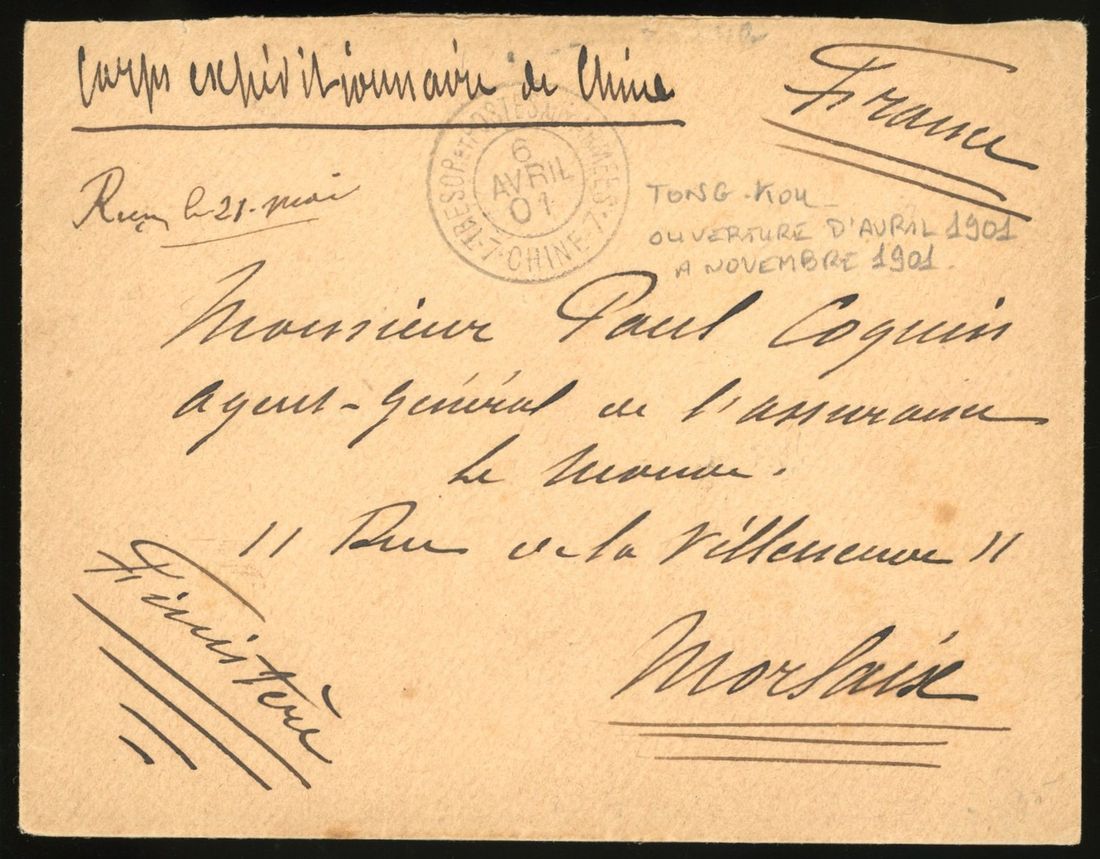 Corps expéditionnaire de Chine
France
TRESOR ET POSTES AUX ARMEES
6
AVRIL
01
7·CHINE·7
Reçu le 21 mai
TONG-KOU
OUVERTURE D'AVRIL 1901
A NOVEMBRE 1901.
Monsieur Paul Coquin
Agent-Général de l'assurance
Le Monde.
11 Rue de la Villeneuve 11
Morlaix
Finistère